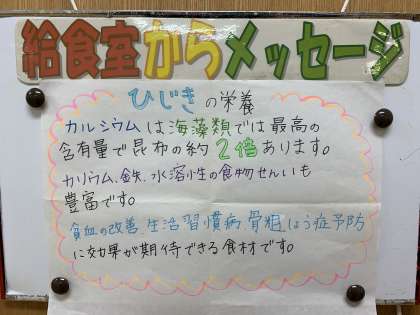 給食室からメッセージ
ひじきの栄養
カルシウムは海藻類では最高の
含有量で昆布の約2倍あります。
カリウム、鉄、水溶性の食物せんいも
豊富です。
貧血の改善、生活習慣病、骨粗しょう症予防
に効果が期待できる食材です。